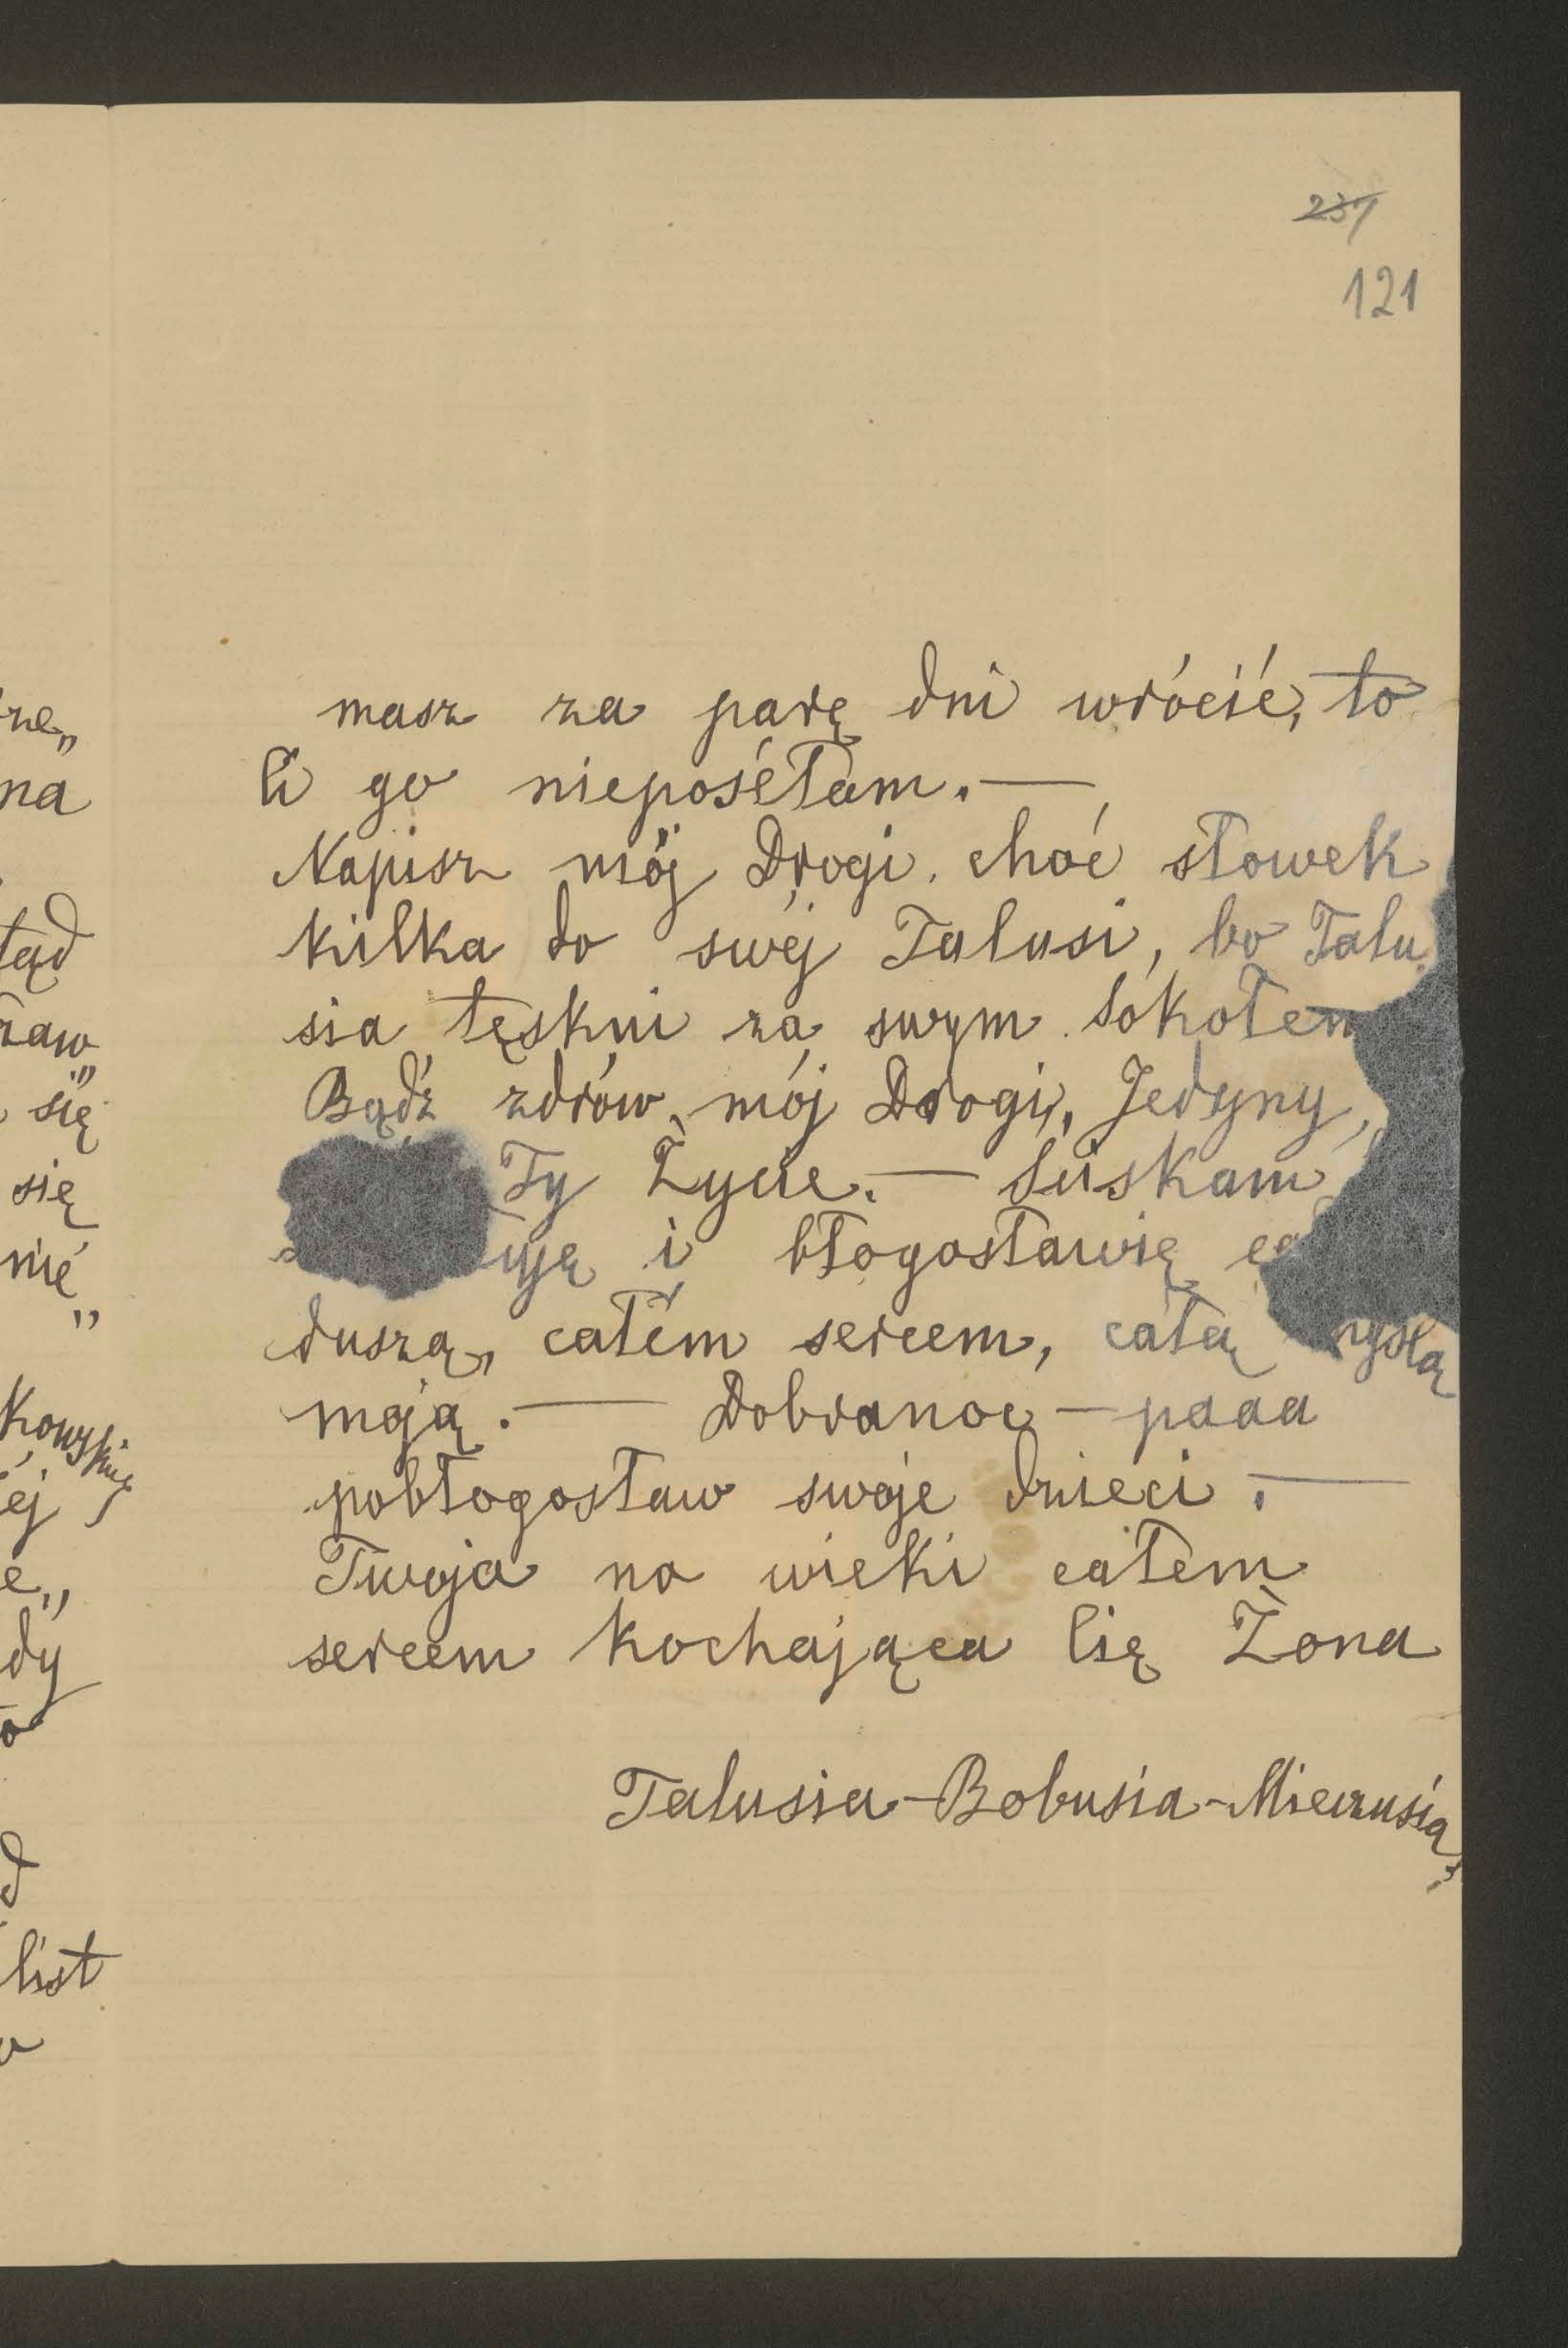 237
121
masz za parę dni wrócić, to
Ci go nieposéłam. —
Napisz mój Drogi, choć słowek
kilka do swéj Talusi, bo Talu
sia tęskni za swym Sokołem
Bądź zdrów, mój Drogi, Jedyny,
Ty Życie. — Ściskam
uję i błogosławię
duszą, całém sercem, całą myślą
moją. — Dobranoc — paaa
pobłogosław swoje dzieci. —
Twoja na wieki całem
sercem kochająca Cię Żona
Talusia - Bobusia - Mieczusia
ne„
na
tąd
zaw„
się
się
nić„
kowskię
éj
e„
dy
list